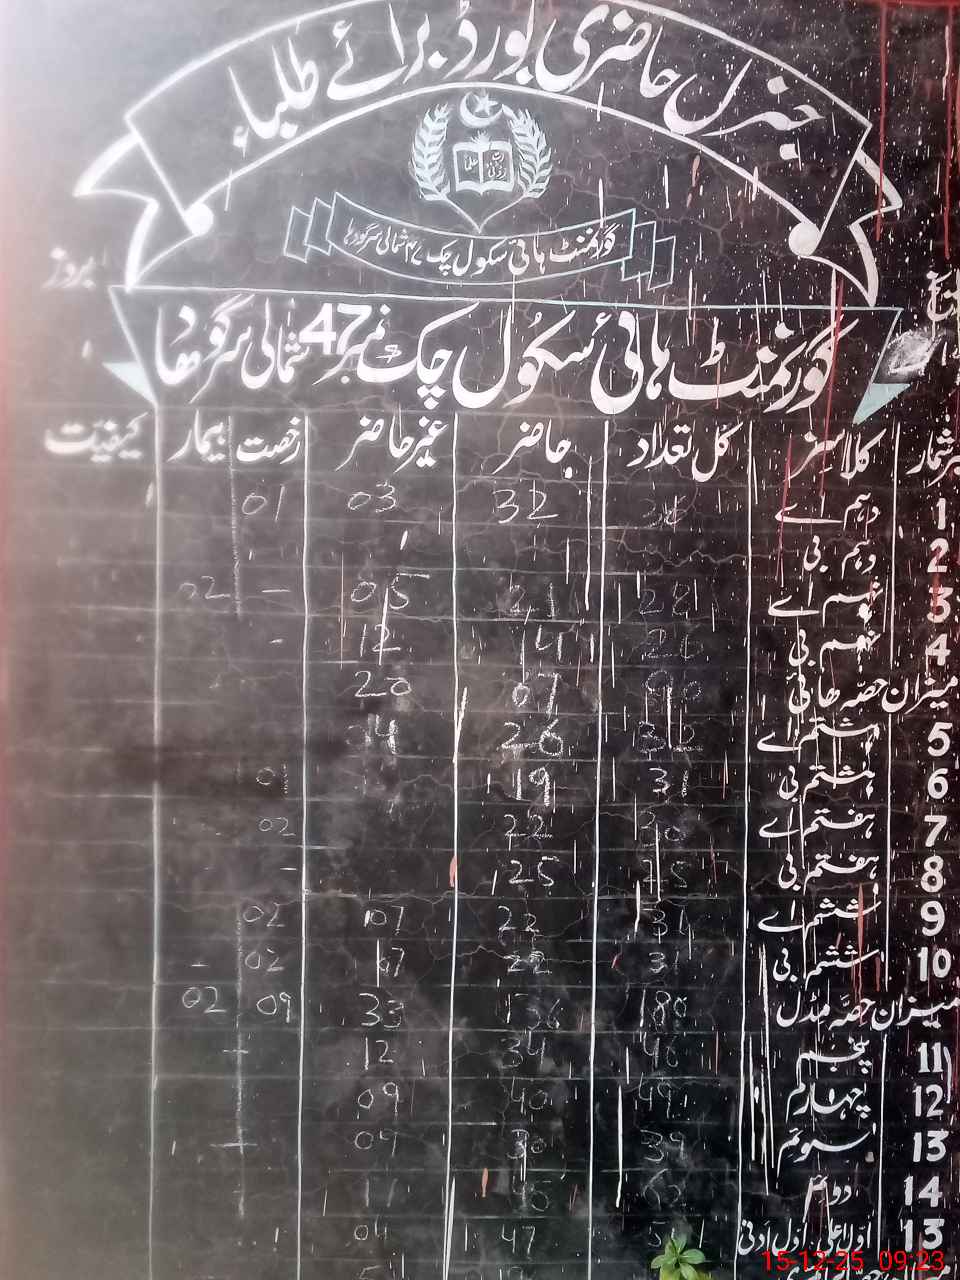 جنرل حاضری بورڈ برائے طلباء
گورنمنٹ ہائی سکول چک ۴۷ شمالی سرگودہا
بروز
گورنمنٹ ہائی سکول چک نمبر 47 شمالی سرگودھا
کلاسز کل تعداد حاضر غیر حاضر رخصت بیمار کیفیت
1 دہم اے 32 03 01
2 دہم بی
3 نہم اے 28 21 05 - 02
4 نہم بی 14 12 -
میزان حصہ ہائی 20
5 ہشتم اے 26
6 ہشتم بی 19 01
7 ہفتم اے 22 02
8 ہفتم بی 25 25 -
9 ششم اے 31 22 07 02
10 ششم بی 31 22 07 02 -
میزان حصہ مڈل 180 136 33 09 02
11 پنجم 46 34 12 -
12 چہارم 49 40 09
13 سوئم 39 30 09 -
14 دوئم
15 اول اعلیٰ، اول ادنیٰ 47 04
15-12-25 09:23